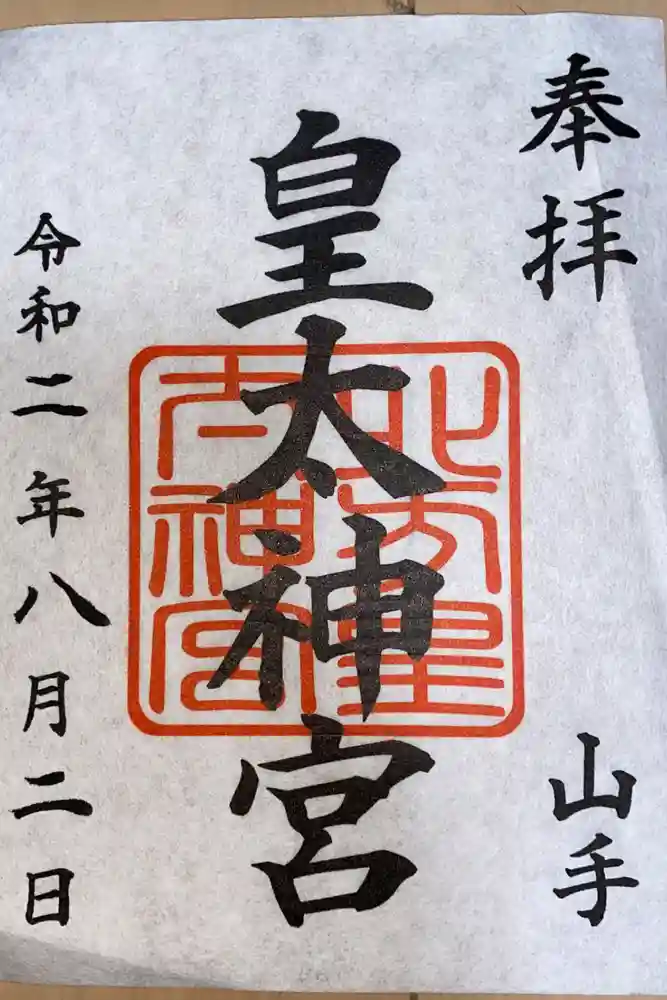 奉拝
山手
皇太神宮
北方皇
太神宮
令和二年八月二日